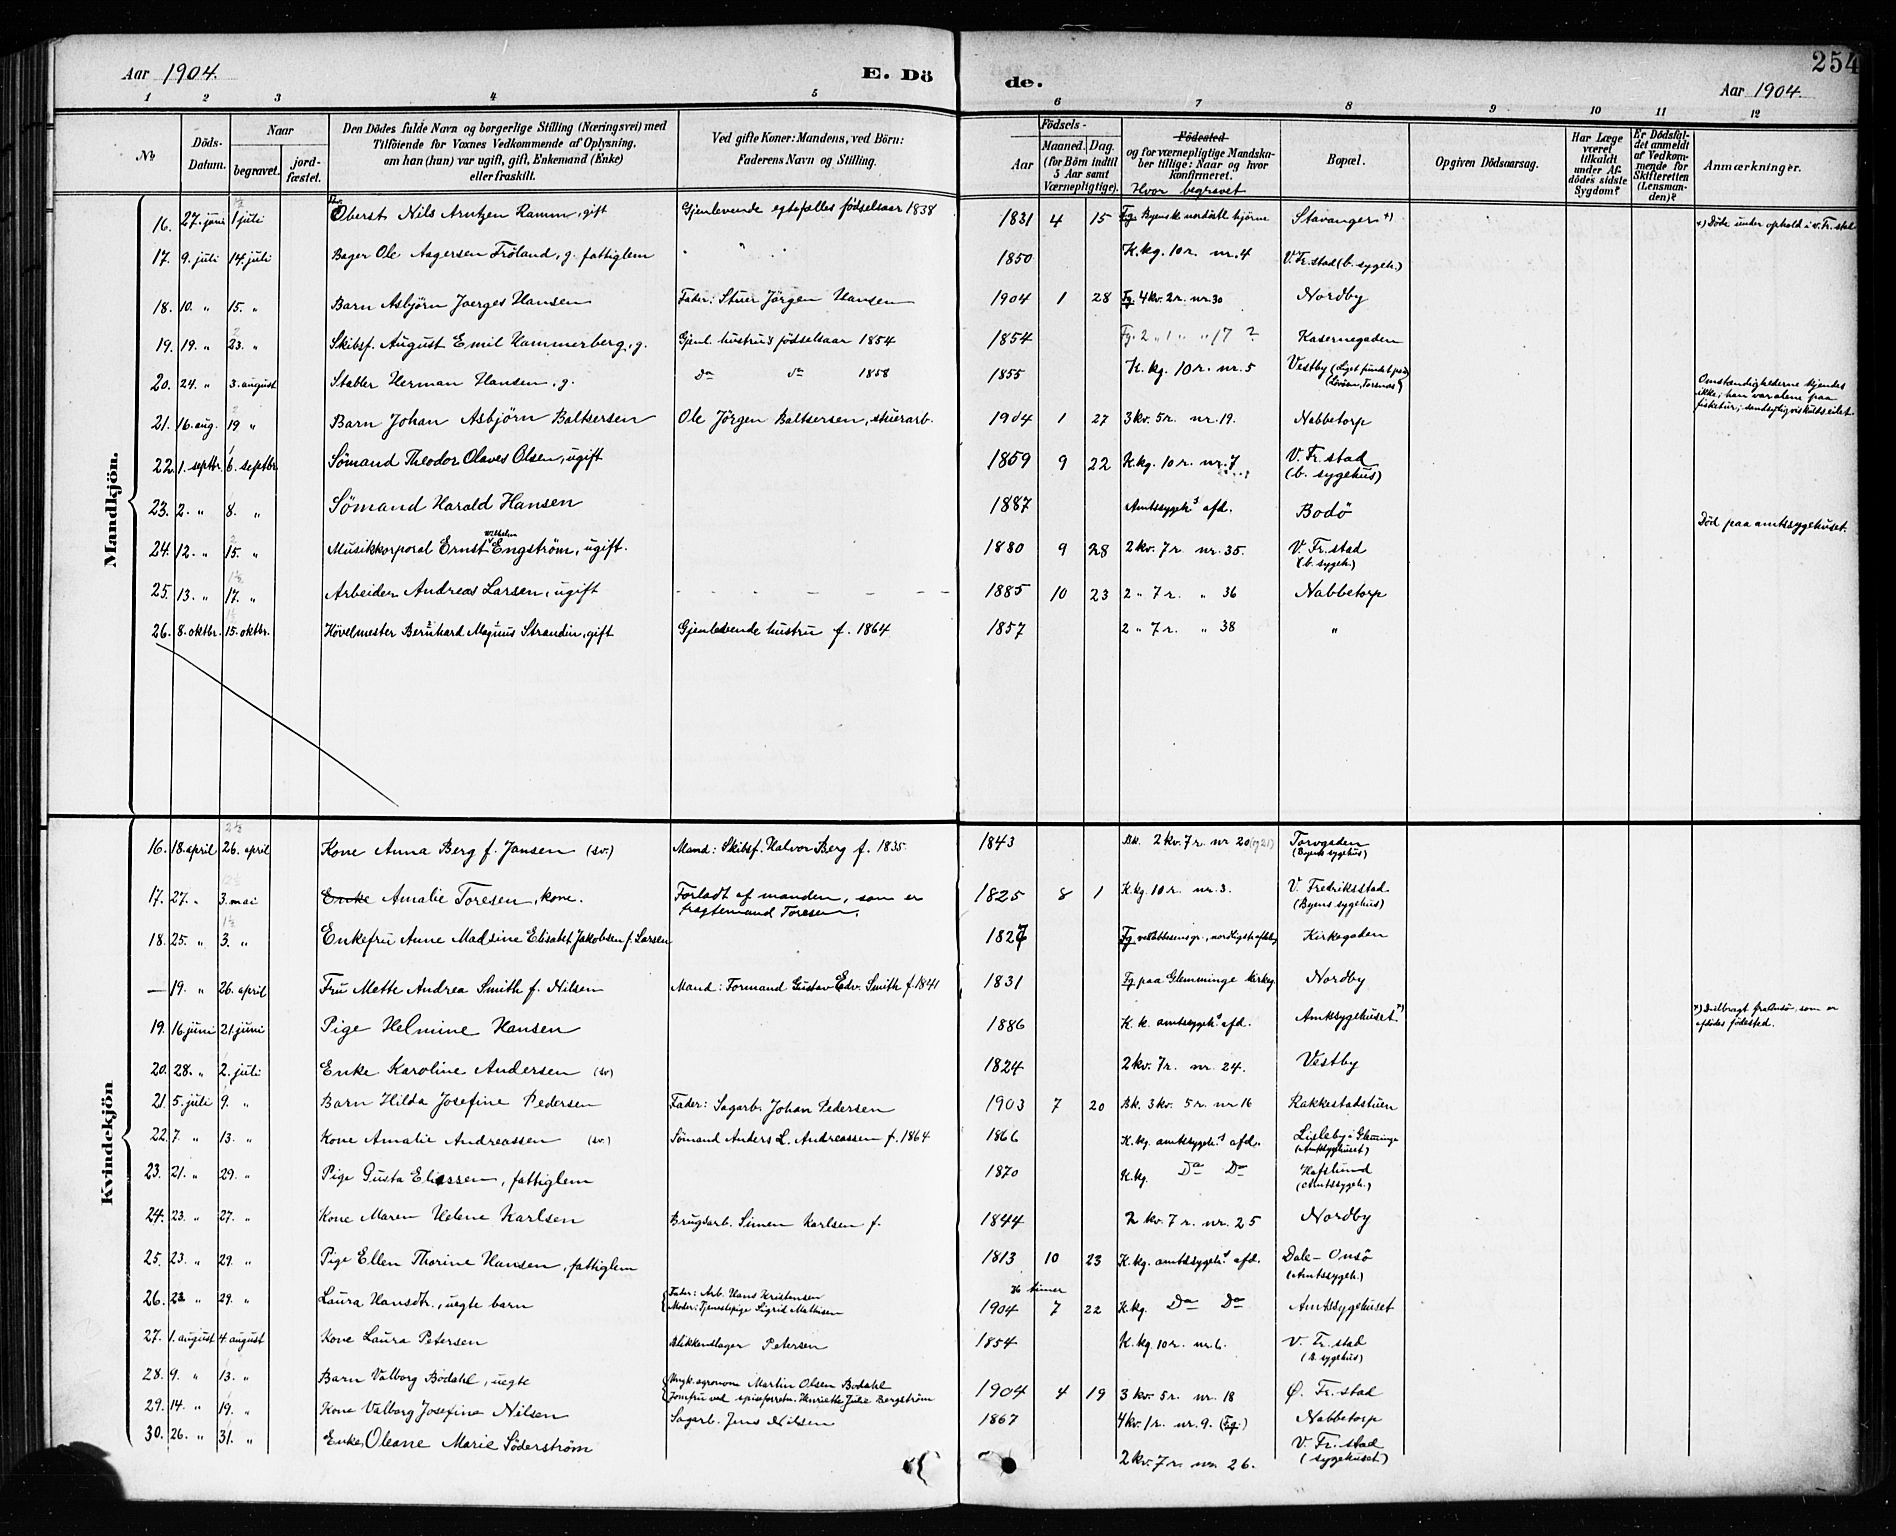 254
Aar 1904. E. Dö de. Aar 1904.
1 2 3 4 5 6 7 8 9 10 11 12
No
Döds-Datum.
Naar begravet. jord-fæstet.
Den Dödes fulde Navn og borgerlige Stilling (Næringsvei) med Tilföiende for Voxnes Vedkommende af Oplysning, om han (hun) var ugift, gift, Enkemand (Enke) eller fraskilt.
Ved gifte Koner: Mandens, ved Börn: Faderens Navn og Stilling.
Födsels-
Aar Maaned. Dag. (for Börn indtil 5 Aar samt Værnepligtige).
Födested og for værnepligtige Mandskaber tillige: Naar og hvor konfirmeret.
Hvor begravet
Bopæl.
Opgiven Dödsaarsag.
Har Læge været tilkaldt under Afdödes sidste Sygdom?
Er Dödsfaldet anmeldt af Vedkommende for Skifteretten (Lensmanden)?
Anmærkninger.
Mandkjön.
16. 27. juni 1 juli Oberst Nils Arntzen Ramm, gift Gjenlevende egtefælles födselsaar 1838 1831 4 15 Fg. Byens k. nordöstl hjörne Stavanger +) +) Döde under ophold i v. Fr.stad
17. 9. juli 14. juli Bager Ole Aagersen Fröland, g. fattiglem " " 1850 K.kg. 10 r. nr. 4 V. Fr.stad (b. sygeh.)
18. 10. " 15. " Barn Asbjörn Joerges Hansen Fader: Stuer Jörgen Hansen 1904 1 28 Fg. 4 kv. 2 r. nr. 30 Nordby
19. 19. " 23. " Skibsf. August Emil Hammerberg, g. Gjenl. hustrus födselsaar 1854 1854 Fg. 2 " 1 " " 17 ? Kasernegaden
20. 24. " 3. august Stabler Herman Hansen, g. Do do 1858 1855 K. kg. 10 r. nr. 5 Vestby (Liget fundet paa Torsnes) Omstændighederne kjendes ikke; han var alene paa fisketur;
21. 16. aug. 19 " Barn Johan Asbjörn Baltsersen Ole Jörgen Baltsersen, stuerarb. 1904 1 27 3 kv. 5 r. nr. 19. Nabbetorp
22. 1. septbr. 6. septbr. Sömand Theodor Olaves Olsen, ugift 1859 9 22 K.kg. 10 r. nr. 7 V. Fr.stad (b. sygehus)
23. 2. " 8. " Sömand Harald Hansen 1887 Amtssygeh.s afd. Bodö Död paa amtssygehuset.
24. 12. " 15. " Musikkorporal Ernst Wilhelm Engström, ugift. 1880 9 28 2 kv. 7 r. nr. 35. V. Fr.stad (b. sygeh.)
25. 13. " 17. " Arbeider Andreas Larsen, ugift - - - - - - 1885 10 23 2 " 7 r. " 36 Nabbetorp
26. 8. oktbr. 15. oktbr. Hövelmester Bernhard Magnus Strandin, gift Gjenlevende hustru f. 1864 1857 2 " 7 r. " 38 "
Kvindekjön
16. 18. april 26. april Kone Anna Berg f. Jansen (sv.) Mand: Skibsf. Halvor Berg f. 1835. 1843 Bk. 2 kv. 7 r. nr 20 (og 21) Torvgaden (Byens sygehus)
17. 27. " 3. mai Enke Amalie Toresen, kone. Forladt af manden, som er fragtemand Toresen. 1825 8 1 K.kg. 10 r. nr. 3. V. Fredriksstad (Byens sygehus)
18. 25. " 3. " Enkefru Anne Madsine Elisabet Jakobsen f. Larsen 1827 Fg. nordligste afdeling Kirkegaden
— 19. " 26. april Fru Mette Andrea Smith f. Nilsen Mand: Formand Gustav Edv. Smith f. 1841 1831 Fg. paa Glemminge kirkeg. Nordby
19. 16. juni 21. juni Pige Helmine Hansen 1886 K. k. amtssygeh.s afd. Amtssygehuset +) +) Indbragt fra Onsö, som er afdödes födested.
20. 28. " 2. juli Enke Karoline Andersen (sv) 1824 2 kv. 7 r. nr. 24. Vestby
21. 5. juli 9. " Barn Hilda Josefine Pedersen Fader: Sagarb. Johan Pedersen 1903 7 20 Bk. 3 kv. 5 r. nr 16 Rakkestadstuen
22. 7. " 13. " Kone Amalie Andreassen (sv.) Sömand Anders L. Andreassen f. 1864 1866 K.kg. amtssygeh.s afd. Lisleby i Glemminge (Amtssygehuset)
23. 21. " 29. " Pige Gusta Eliassen, fattiglem 1870 K.kg. Do Do Hafslund (Amtssygeh.)
24. 23. " 27. " Kone Maren Helene Karlsen Brugsarb. Simen Karlsen f. 1844 2 kv. 7 r. nr. 25 Nordby
25. 23. " 29. " Pige Ellen Thorine Hansen, fattiglem 1813 10 23 K.kg. amtssygeh.s afd. Dale - Onsö (Amtssygeh.)
26. 23 " 29. " Laura Hansdtr., uegte barn Fader: Arb. Hans Kristensen Moder: Tjenestepige Sigrid Mathisen 36 timer 1904 7 22 K.kg. Do Do Amtssygehuset
27. 1. august 4 august Kone Laura Petersen Blikkenslager Petersen 1854 K.kg. 10 r. nr. 6. V. Fr.stad (B. sygehus)
28. 9. " 13. " Barn Valborg Bödahl, uegte Ungk. agronom Martin Olsen Bodahl Jomfru ved spiseforretn. Henriette Julie Bergström 1904 4 19 3 kv. 5 r. nr. 18 Ø. Fr.stad
29. 14. " 19. " Kone Valborg Josefine Nilsen Sagarb. Jens Nilsen 1867 4 kv. 1 r. nr. 9. (Fg.) Nabbetorp
30. 26. " 31. " Enke Oleane Marie Söderström 2 kv. 7 r. nr. 26. V. Fr.stad (sygehuset.)